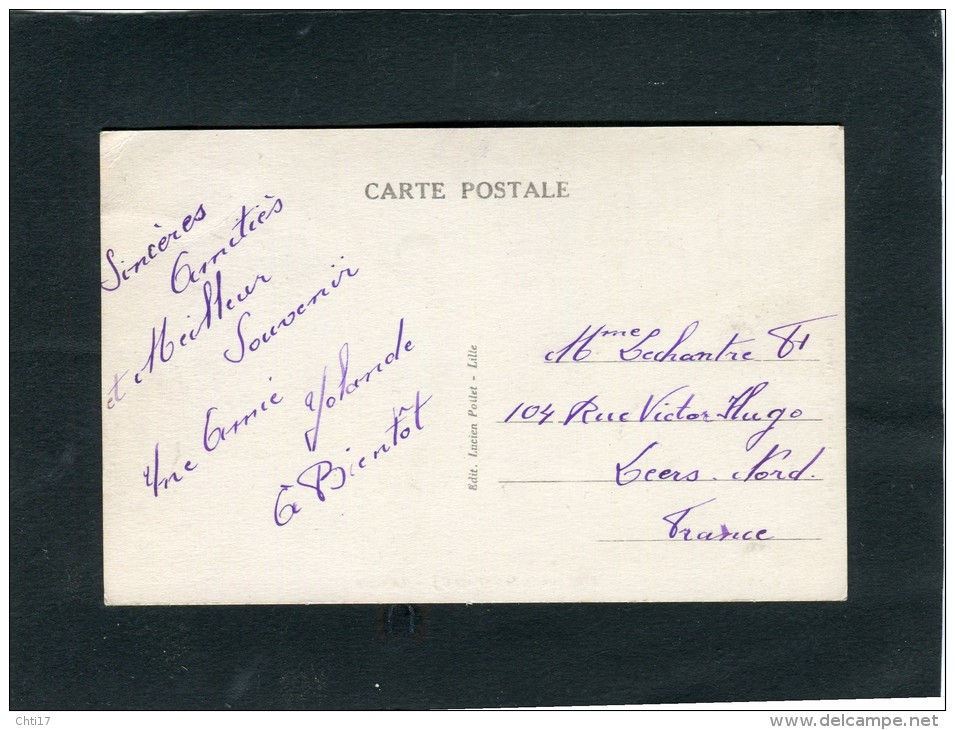 CARTE POSTALE
Sincères
Amitiès
et Meilleur
Souvenir
Une Amie Yolande
à Bientôt
Edit. Lucien Pollet - Lille
Mme Lechantre
104 Rue Victor Hugo
Leers. Nord.
France
Chti17
delcampe.net